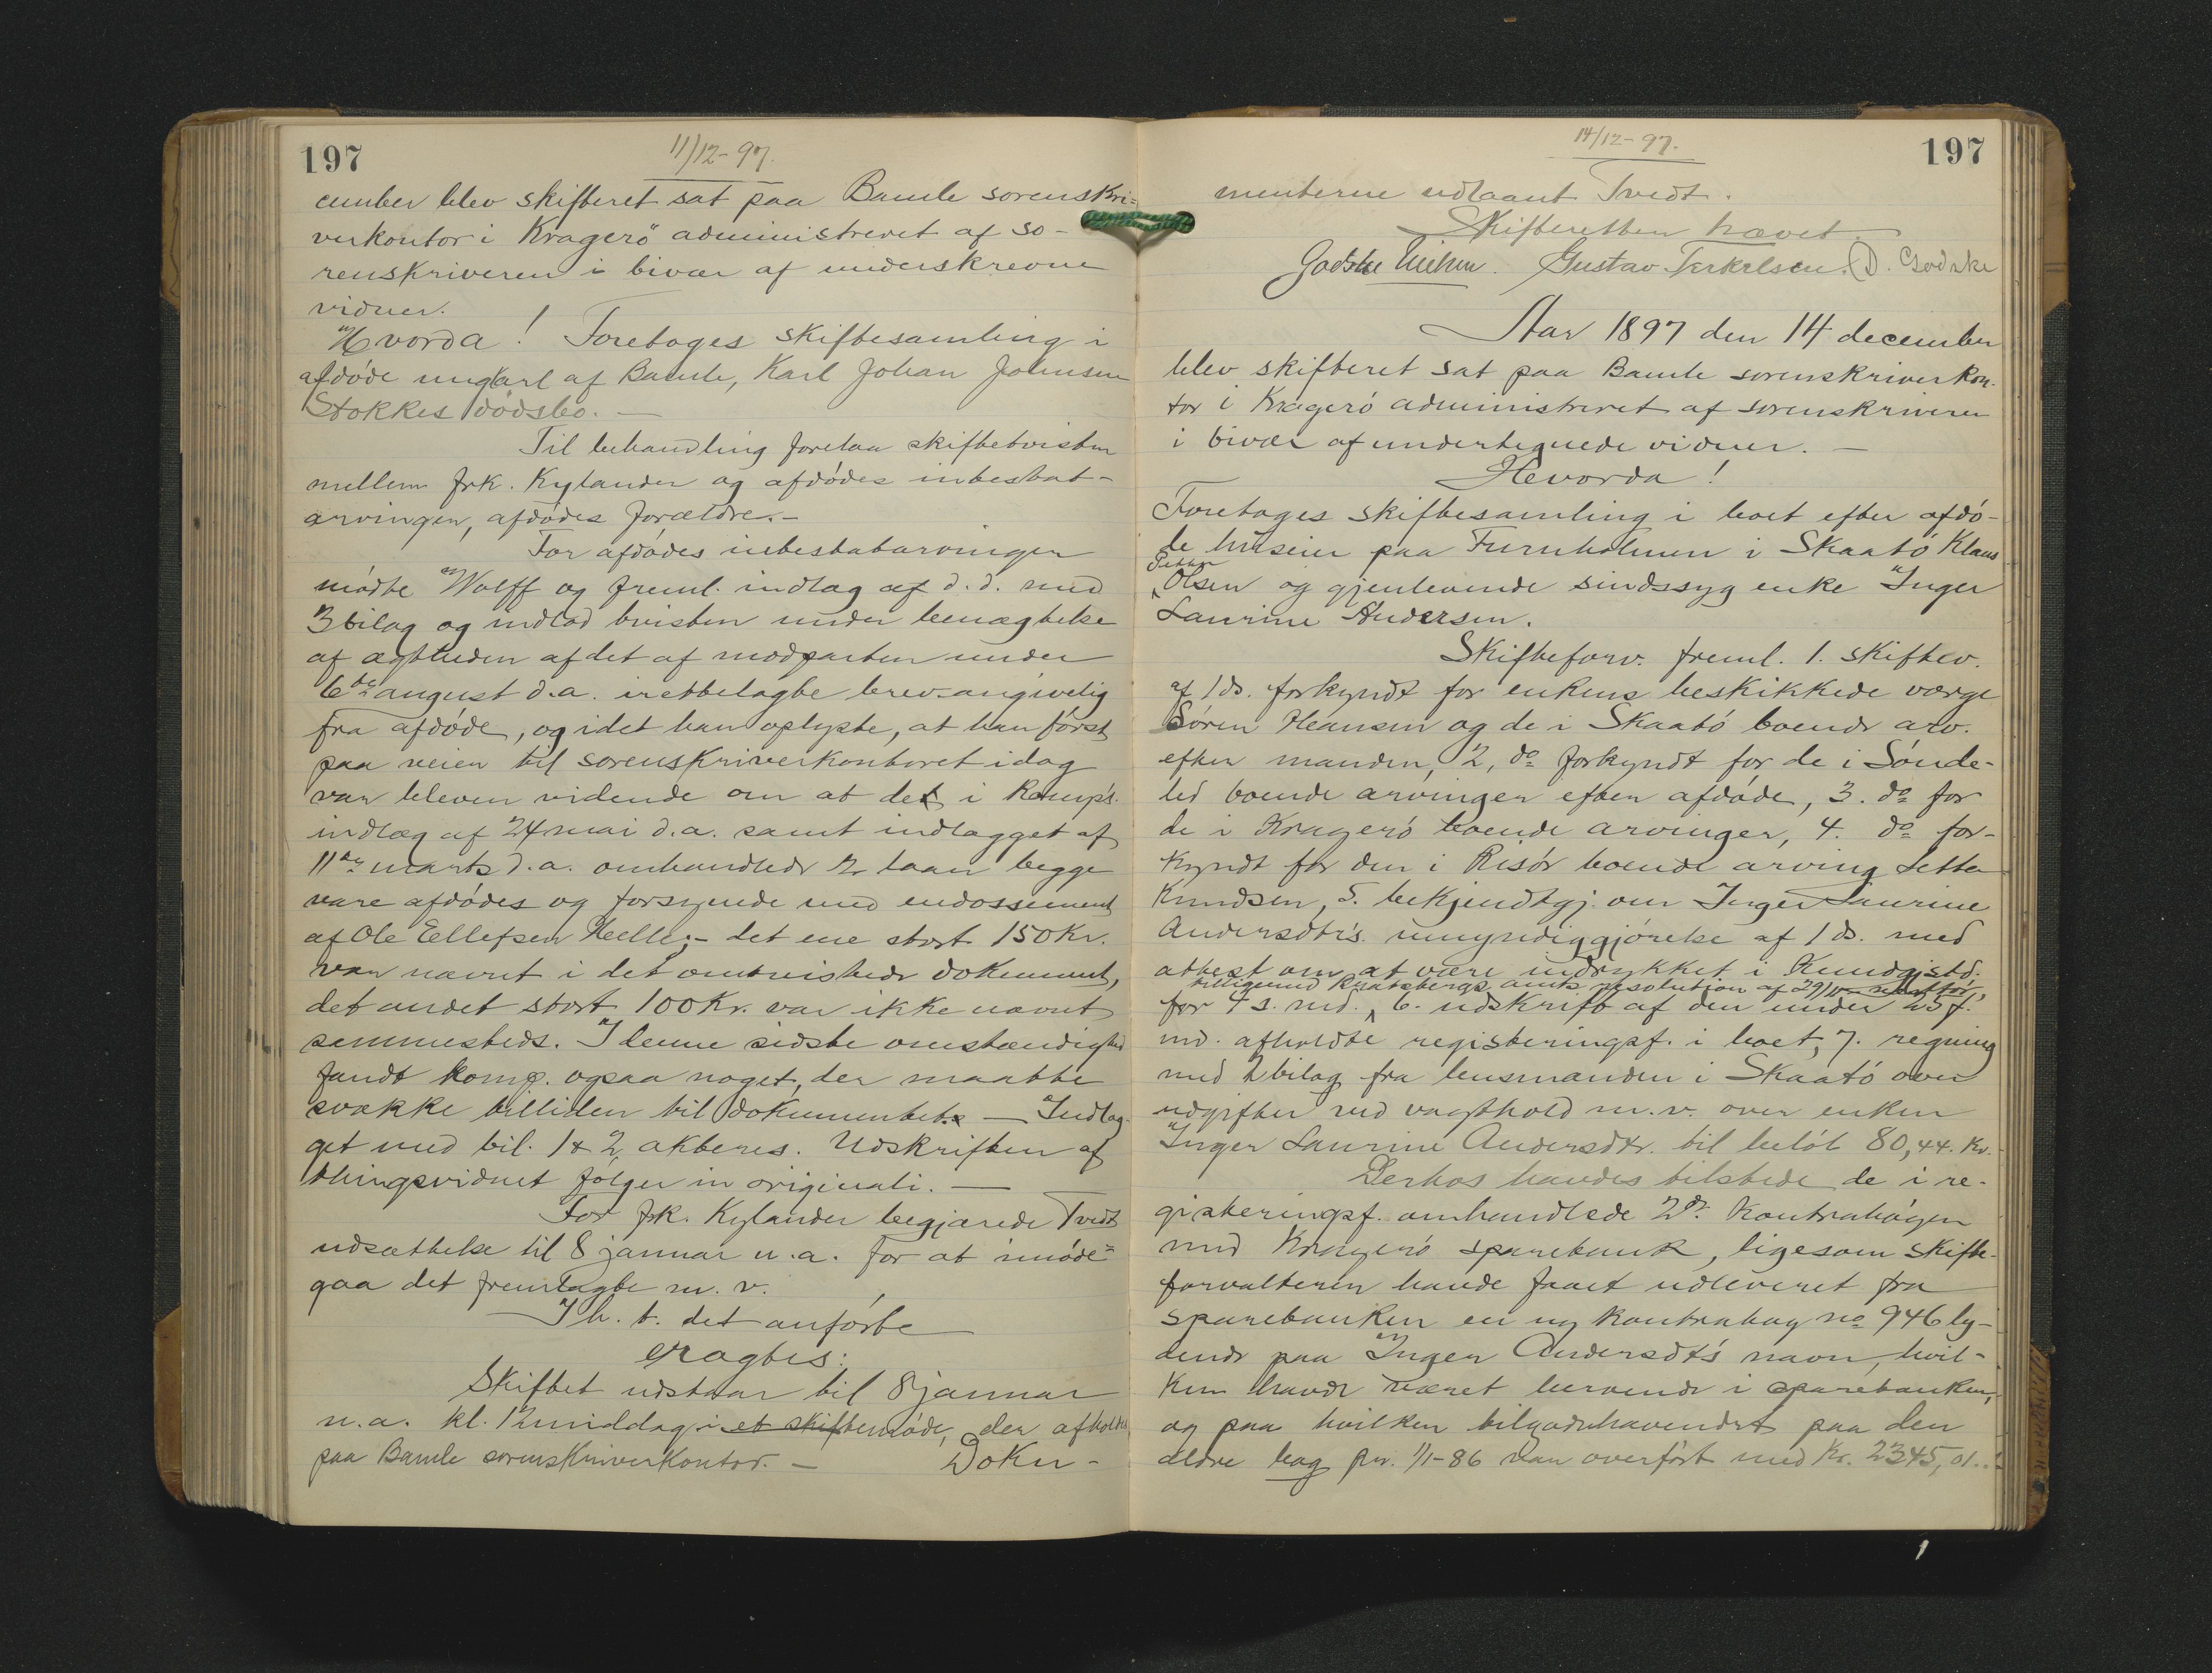 197
11/12-97.
cember blev skifteret sat paa Bamle sorenskri-
verkontor i Kragerö administreret af so-
renskriveren i bivær af underskrevne
vidner.
Hvorda! Foretoges skiftesamling i
afdøde ungkarl af Bamle, Karl Johan Johnsen
Stokkes dødsbo. —
Til behandling forelaa skiftetvisten
mellem frk. Kylander og afdødes intestat-
arvinger, afdødes forældre. —
For afdødes intestatarvinger
mødte Wolff og freml. indlæg af d.d. med
3 bilag og indlod tvisten under benægtelse
af ægtheden af det af modparten under
6te august d.a. irettelagte brev angivelig
fra afdøde, og idet han oplyste, at han først
paa veien til sorenskriverkontoret idag
var bleven vidende om at de i Komp's.
indlæg af 24 mai d.a. samt indlægget af
11te marts d.a. omhandlede 2 laan begge
vare afdødes og forsynede med endossement
af Ole Ellefsen Helle; - det ene stort 150 Kr.
var nævnt i det omtvistede dokument,
det andet stort 100 Kr. var ikke nævnt
sammesteds. I denne sidste omstændighed
fandt komp. ogsaa noget, der maatte
svække tilliden til dokumentet. — Indlæg-
get med bil. 1 & 2 akteres. Udskriften af
thingsvidnet følger in originali. —
For frk. Kylander begjærede Tvedt
udsættelse til 8 januar n.a. for at imøde-
gaa det fremlagte m.v.
I h. t. det anførte
eragtes:
Skiftet udstaar til 8 januar
n.a. kl. 12 middag i et skiftemøde, der afholdes
paa Bamle sorenskriverkontor. — Doku-
14/12-97.
197
menterne udlaant Tvedt.
Skifteretten hævet.
Godske Nielsen. Gustav Terkelsen. D. Godske
Aar 1897 den 14 december
blev skifteret sat paa Bamle sorenskriverkon-
tor i Kragerö administreret af sorenskriveren
i bivær af undertegnede vidner. —
Hvorda!
Foretoges skiftesamling i boet efter afdø-
de huseier paa Furuholmen i Skaatö Klaus
Petter
Olsen og gjenlevende sindssyg enke Inger
Laurine Andersen.
Skifteforv. freml. 1. skiftev.
af 1 ds. forkyndt for enkens beskikkede værge
Søren Hansen og de i Skaatö boende arv.
efter manden, 2, do forkyndt for de i Sönde-
led boende arvinger efter afdøde, 3. do for
de i Kragerö boende arvinger, 4. do for-
kyndt for den i Risör boende arving Jette
Knudsen, 5. bekjendtgj. om Inger Laurine
Andersdtr's. umyndiggjørelse af 1 ds. med
attest om at være indrykket i Kundgj.std.
tilligemed Bratsbergs amts resolution af 29/10
for 4 s. md. 6. udskrift af den under 25 f.
md. afholdte registeringsf. i boet, 7. regning
med 2 bilag fra lensmanden i Skaatö over
udgifter ved vagthold m.v. over enken
Inger Laurine Andersdtr. til beløb 80,44. Kr.
Derhos havdes tilstede de i re-
gisteringsf. omhandlede 2de Kontrabøger
med Kragerö sparebank, ligesom skifte-
forvalteren havde faaet udleveret fra
sparebanken en ny kontrabog no 946 ly-
dende paa Inger Andersdt's navn, hvil-
ken havde været beroende i sparebanken,
og paa hvilken tilgodehavendet paa den
ældre bog pr. 1/1-86 var overført med Kr. 2345,01.